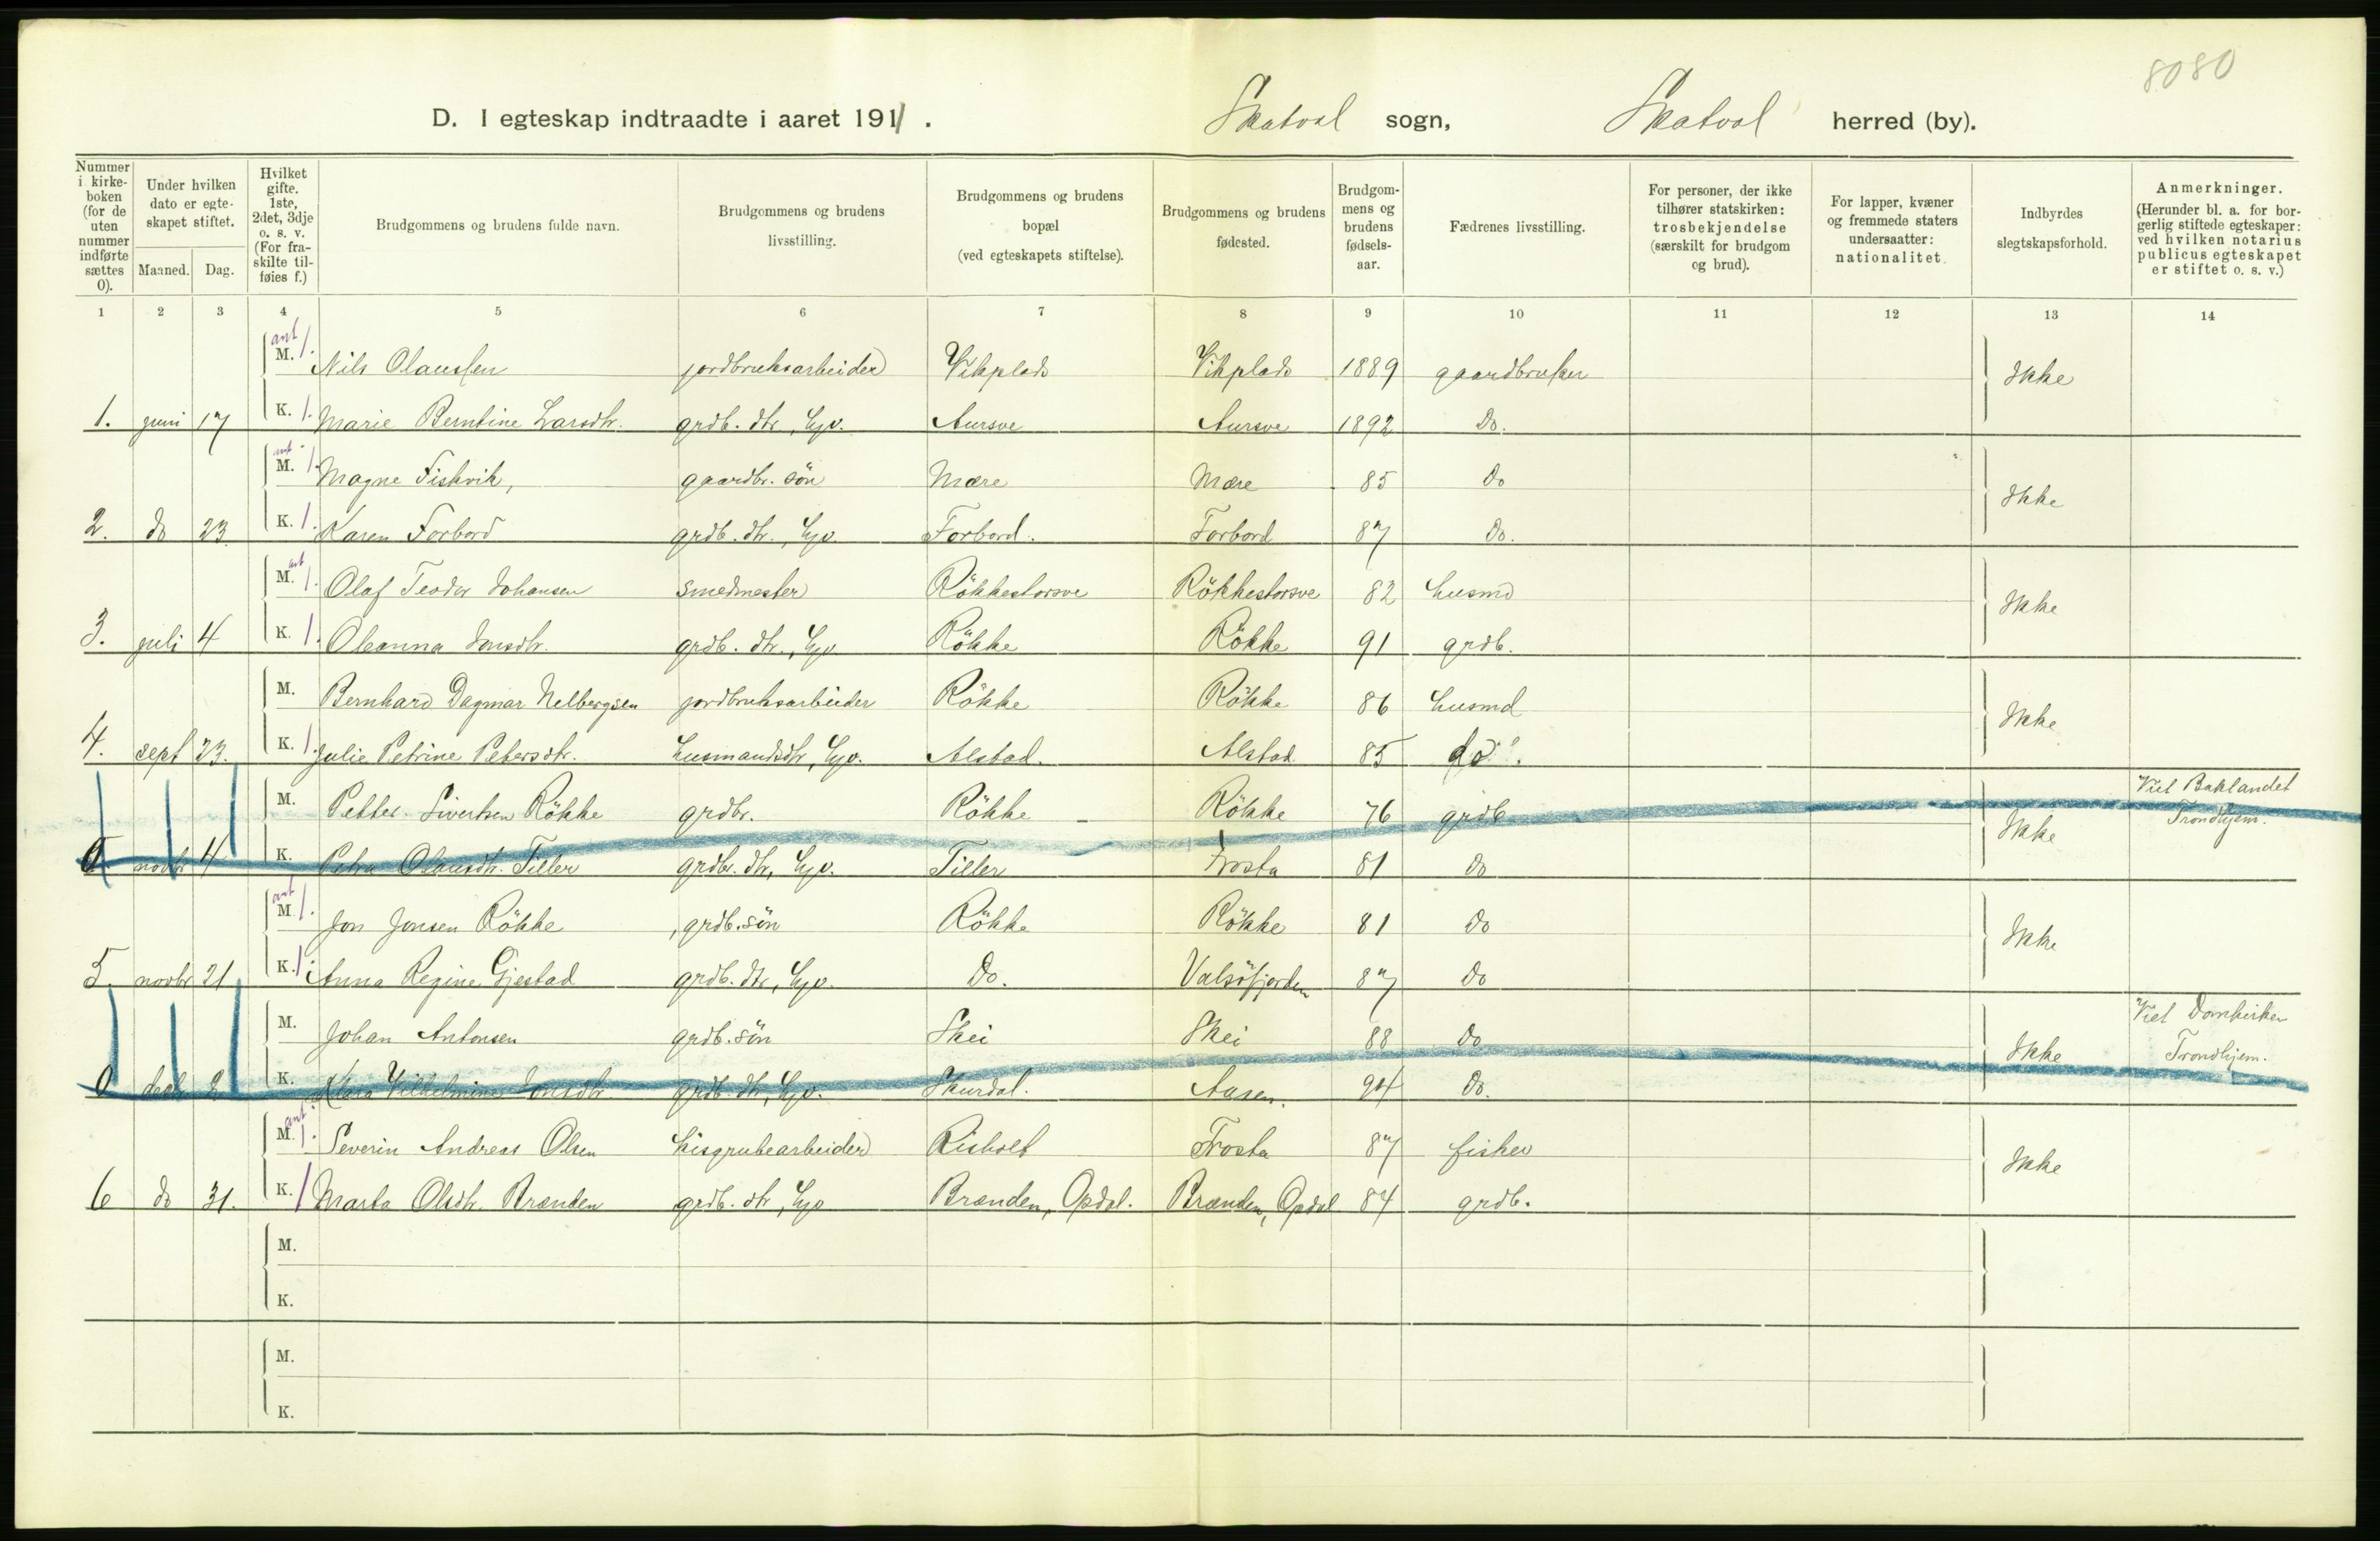 8080
D. I egteskap indtraadte i aaret 1911. Skatval sogn, Skatval herred (by).
Nummer i kirkeboken (for de uten nummer indførte sættes 0).
Under hvilken dato er egteskapet stiftet.
Maaned. Dag.
Hvilket gifte. 1ste, 2det, 3dje o. s. v. (For fraskilte tilføies f.)
Brudgommens og brudens fulde navn.
Brudgommens og brudens livsstilling.
Brudgommens og brudens bopæl (ved egteskapets stiftelse).
Brudgommens og brudens fødested.
Brudgommens og brudens fødselsaar.
Fædrenes livsstilling.
For personer, der ikke tilhører statskirken: trosbekjendelse (særskilt for brudgom og brud).
For lapper, kvæner og fremmede staters undersaatter: nationalitet.
Indbyrdes slegtskapsforhold.
Anmerkninger. (Herunder bl. a. for borgerlig stiftede egteskaper: ved hvilken notarius publicus egteskapet er stiftet o. s. v.)
1 2 3 4 5 6 7 8 9 10 11 12 13 14
ant M. 1. Nils Olaussen jordbruksarbeider Vikplads Vikplads 1889 gaardbruker Ikke
1. juni 17 K. 1. Marie Berntine Larsdtr. grdb. dtr, hjv. Aursve Aursve 1892 Do.
ant M. 1. Magne Fiskvik, gaardbr. søn Mære Mære 85 Do Ikke
2. do 23 K. 1. Karen Forbord grdb. dtr., hjv. Forbord. Forbord 87 Do.
ant M. 1. Olaf Teodor Johansen smedmester Rökkestorsve Rökkestorsve 82 husmd Ikke
3. juli 4 K. 1. Oleanna Jonsdtr. grdb. dtr., hjv Rökke Rökke 91 grdb.
M. Bernhard Dagmar Nelbergsen jordbruksarbeider Rökke Rökke 86 husmd Ikke
4. sept 23. K. 1. Julie Petrine Petersdtr. husmandsdtr, hjv. Alstad. Alstad 85 do.
M. Petter Sivertsen Rökke grdbr. Rökke Rökke 76 grdb Ikke Viet Baklandet Trondhjem.
0 novbr 4 K. Petra Olausdtr. Tiller grdbr. dtr, hjv. Tiller Frosta 81 do
ant M. 1. Jon Jonsen Rökke grdb. søn Rökke Rökke 81 do Ikke
5. novbr 21 K. 1. Anna Regine Gjestad grdb. dtr, hjv. Do. Valsöfjorden 87 do
M. Johan Antonsen grdb. søn Skei Skei 88 do Ikke Viet Domkirken Trondhjem.
0 decb 2 K. Klara Vilhelmine Jonsdtr grdb. dtr, hjv. Skurdal. Aasen. 94 do.
ant M. 1. Severin Andreas Olsen kisgrubearbeider Risholt Frosta 87 fisker Ikke
6 do 31. K. 1 Marta Olsdtr. Brænden grdb. dtr, hjv Brænden, Opdal. Brænden, Opdal 84 grdb.
M.
K.
M.
K.